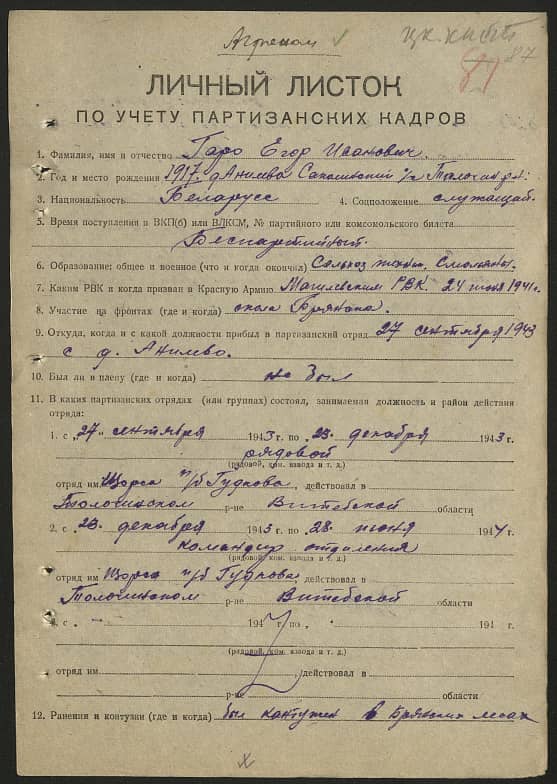 Агроном
87
ЛИЧНЫЙ ЛИСТОК
ПО УЧЕТУ ПАРТИЗАНСКИХ КАДРОВ
1. Фамилия, имя и отчество Гаро Егор Иванович.
2. Год и место рождения 1917. д. Анилево с/с Толочин р-н:
3. Национальность Беларусс 4. Соцположение служащий.
5. Время поступления в ВКП(б) или ВЛКСМ, № партийного или комсомольского билета
Беспартийный.
6. Образование: общее и военное (что и когда окончил) Сельхоз техни. Смоляны.
7. Каким РВК и когда призван в Красную Армию Магилевским РВК. 24 июня 1941 г.
8. Участие на фронтах (где и когда) около Брянска.
9. Откуда, когда и с какой должности прибыл в партизанский отряд 27 сентября 1943
с д. Анилево.
10. Был ли в плену (где и когда) не был
11. В каких партизанских отрядах (или группах) состоял, занимаемая должность и район действия
отряда:
1. с „27" сентября 1943 г. по „23. декабря 1943 г.
рядовой
(рядовой, ком. взвода и т. д.)
отряд им Щорса п/б Гудкова, действовал в
Толочинском р-не Витебской области
2. с „23. декабря 1943 г. по „28. июня 1944 г.
командир отделения
(рядовой, ком. взвода и т. д.)
отряд им Щорса п/б Гудкова, действовал в
Толочинском р-не Витебской области
3. с „ 194 г. по „ 194 г.
(рядовой, ком. взвода и т. д.)
отряд им. , действовал в
р-не области
12. Ранения и контузии (где и когда) был контужен в Брянских лесах